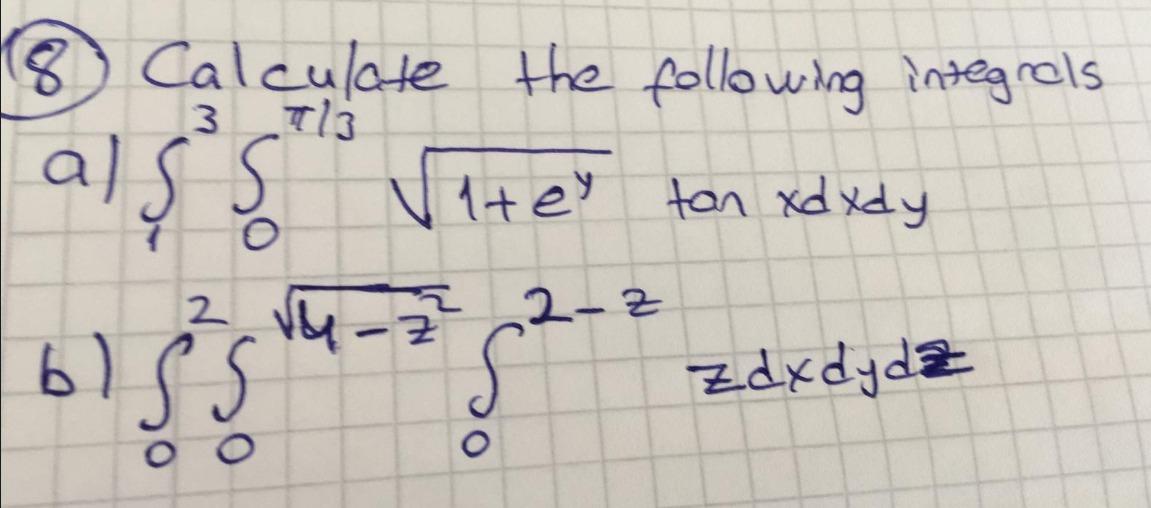 8) Calculate the following integrals
a) ∫₁³ ∫₀^(π/3) √(1+e^y) tan xdxdy
b) ∫₀² ∫₀^(√(4-z²)) ∫₀^(2-z) zdxdydz